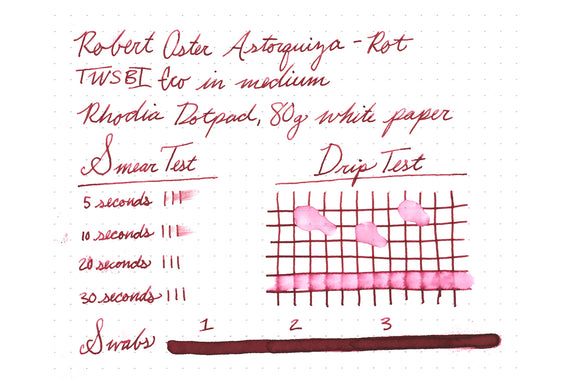 Robert Oster Astorquiza - Rot
TWSBI Eco in medium
Rhodia Dotpad, 80g white paper
Smear Test
5 seconds
10 seconds
20 seconds
30 seconds
Drip Test
Swabs 1 2 3